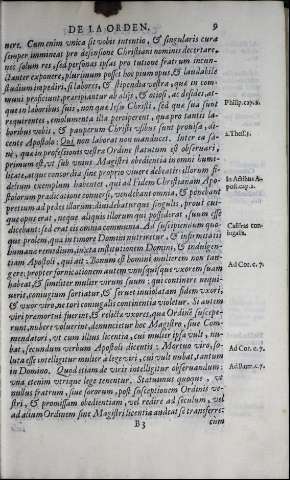 DE LA ORDEN. 9
nere. Cum enim vnica sit vobis intentio, & singularis cura
semper immineat pro defensione Christiani nominis decertare,
nec solum res, sed personas ipsas pro tutione fratrum incun-
ctanter exponere, plurimum posset hoc pium opus, & laudabile
studium impediri, si labores, & stipendia vestra, quæ in com-
muni proficiunt, præripiantur ab alijs, & ociosi, ac desides, at-
que in laboribus suis, non quæ Iesu Christi, sed quæ sua sunt
Philip. cap. 2.
requirentes, emolumenta ista perciperent, quæ pro tantis la-
boribus vobis, & pauperum Christi vsibus sunt prouisa, di-
cente Apostolo: Qui non laborat non manducet. Inter ea sa-
2. Thess. 3.
nè, quæ in professionis vestra Ordine statutum est obseruari,
primum est, vt sub vnius Magistri obedientia in omni humi-
litate, atque concordia sine proprio viuere debeatis: illorum fi-
delium exemplum habentes, qui ad Fidem Christianam Apo-
In Actibus A-
post. cap. 2.
stolorum prædicatione conuersi, vendebant omnia, & ponebant
pretium ad pedes illorum: diuidebaturque singulis, prout cui-
que opus erat, neque aliquis illorum quæ possidebat, suum esse
dicebant: sed erat eis omnia communia. Ad suscipiendum quo-
que prolem, quæ in timore Domini nutriretur, & infirmitatis
Castitas con-
iugalis.
humanæ remedium, iuxta institutionem Domini, & indulgen-
tiam Apostoli, qui ait: Bonum est homini mulierem non tan-
gere: propter fornicationem autem vnusquisque vxorem suam
Ad Cor. c. 7.
habeat, & similiter mulier virum suum: qui continere nequi-
uerit, coniugium sortiatur, & seruet inuiolatam fidem vxori,
& vxor viro, ne tori coniugalis continentia violetur. Si autem
viri præmortui fuerint, & relictæ vxores, quæ Ordinẽ suscepe-
runt, nubere voluerint, denuncietur hoc Magistro, siue Com-
mendatori, vt cum illius licentia, cui mulier ipsa vult, nu-
bat, secundum verbum Apostoli dicentis: Mortuo viro, so-
Ad Cor. c. 7.
luta est illius mulier a lege viri, cui vult nubat, tantum
in Domino. Quod etiam de viris intelligitur obseruandum:
Ad Rom. c. 7.
vna etenim vtrique lege tenentur. Statuimus quoque, vt
nullus fratrum, siue sororum, post susceptionem Ordinis ve-
stri, & promissam obedientiam, vel redire ad sæculum, vel
ad alium Ordinem sine Magistri licentia audeat se transferre:
B3 cum